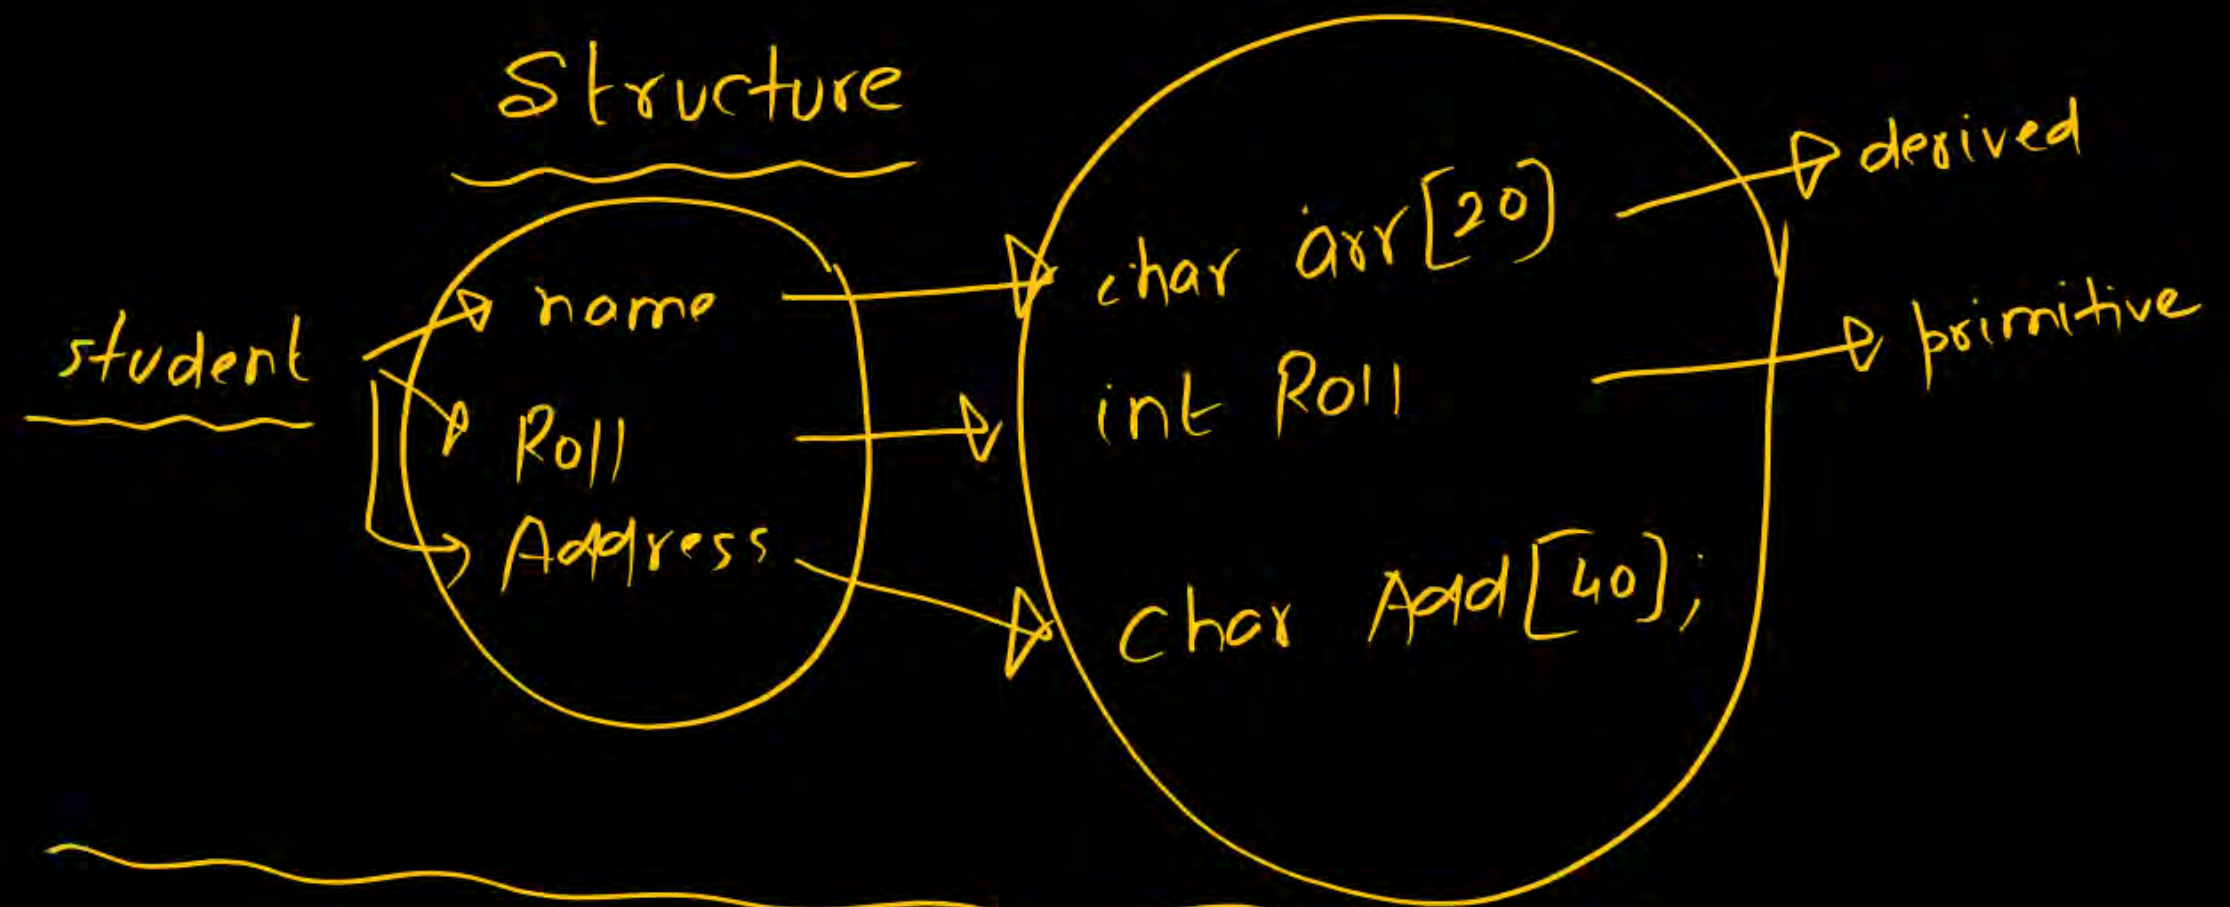 Structure
student
name
Roll
Address
char arr[20]
int Roll
Char Add[40];
derived
primitive